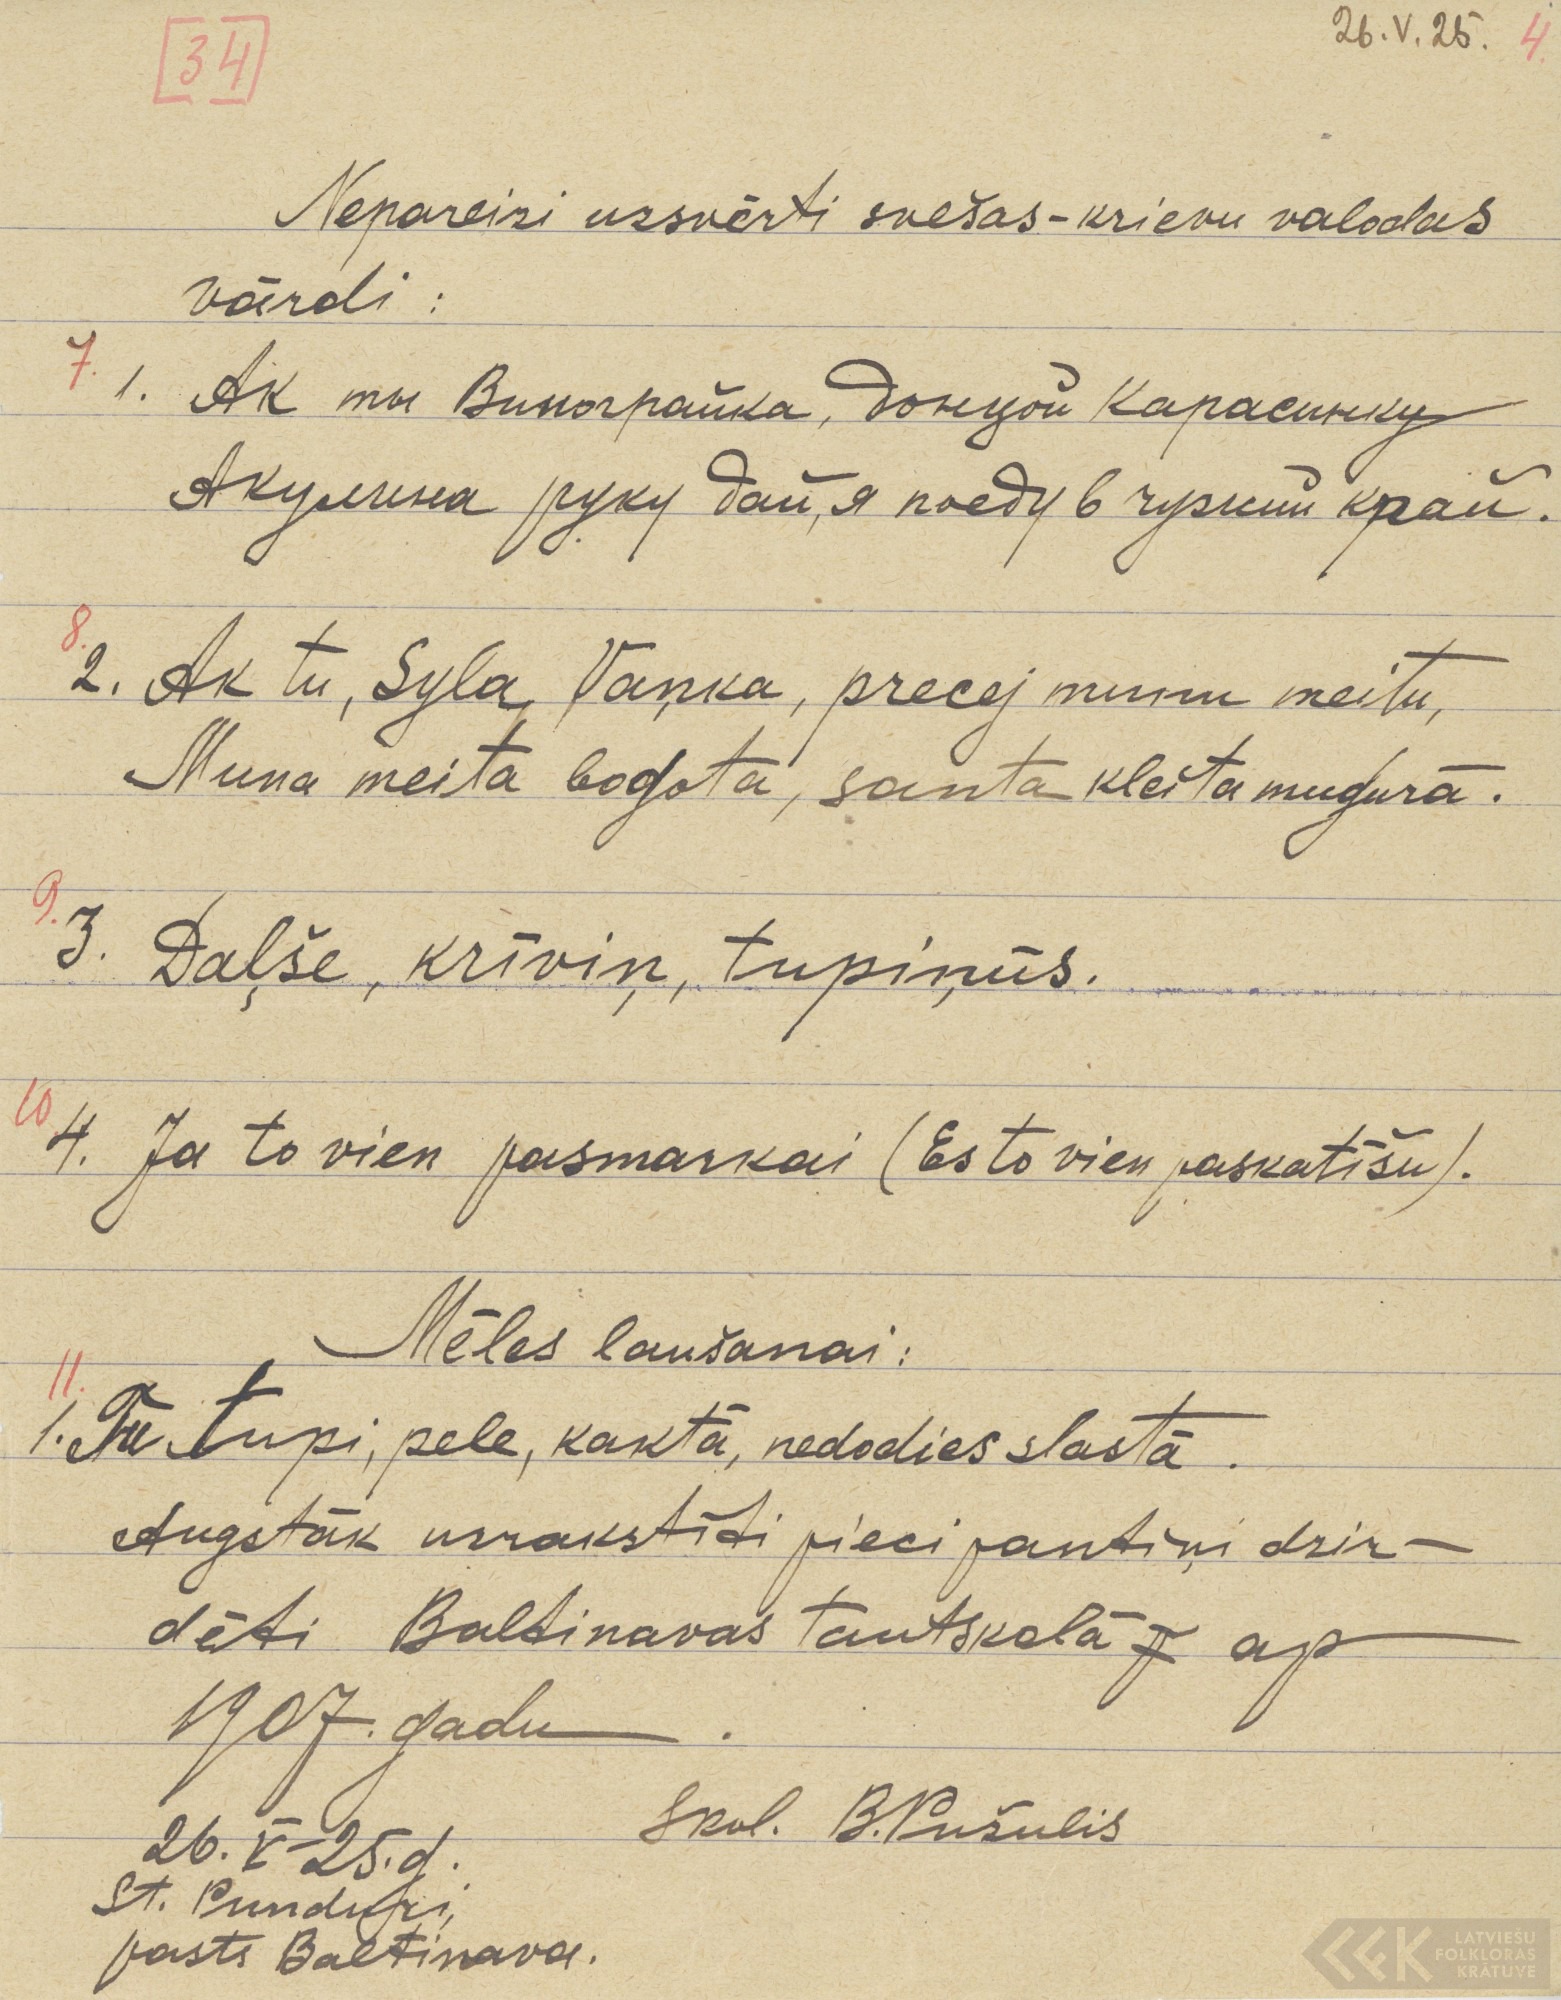 [34]
26.V.25. 4.
Nepareizi uzsvērti svešas-krievu valodas
vārdi :
7. 1. Ак ты Винограйка, донцой Карасинку
Акулина руку дай, я поеду в чужий край.
8. 2. Ak tu, Syla, Vaņka, precej munu meitu,
Muna meita bogota, santa kleita mugurā.
9. 3. Daļše, krīviņ, tupiņūs.
10. 4. Ja to vien pasmarkai (Es to vien paskatīšu).
Mēles laušanai :
11.
1. Tu tupi, pele, kaktā, nedodies slastā .
Augstāk uzrakstīti pieci pantiņi dzir-
dēti Baltinavas tautskolā ap
1907. gadu .
Skol. B. Pušulis
26. V 25. g.
St. Punduri,
pasts Baltinava.
LATVIEŠU
FOLKLORAS
KRĀTUVE